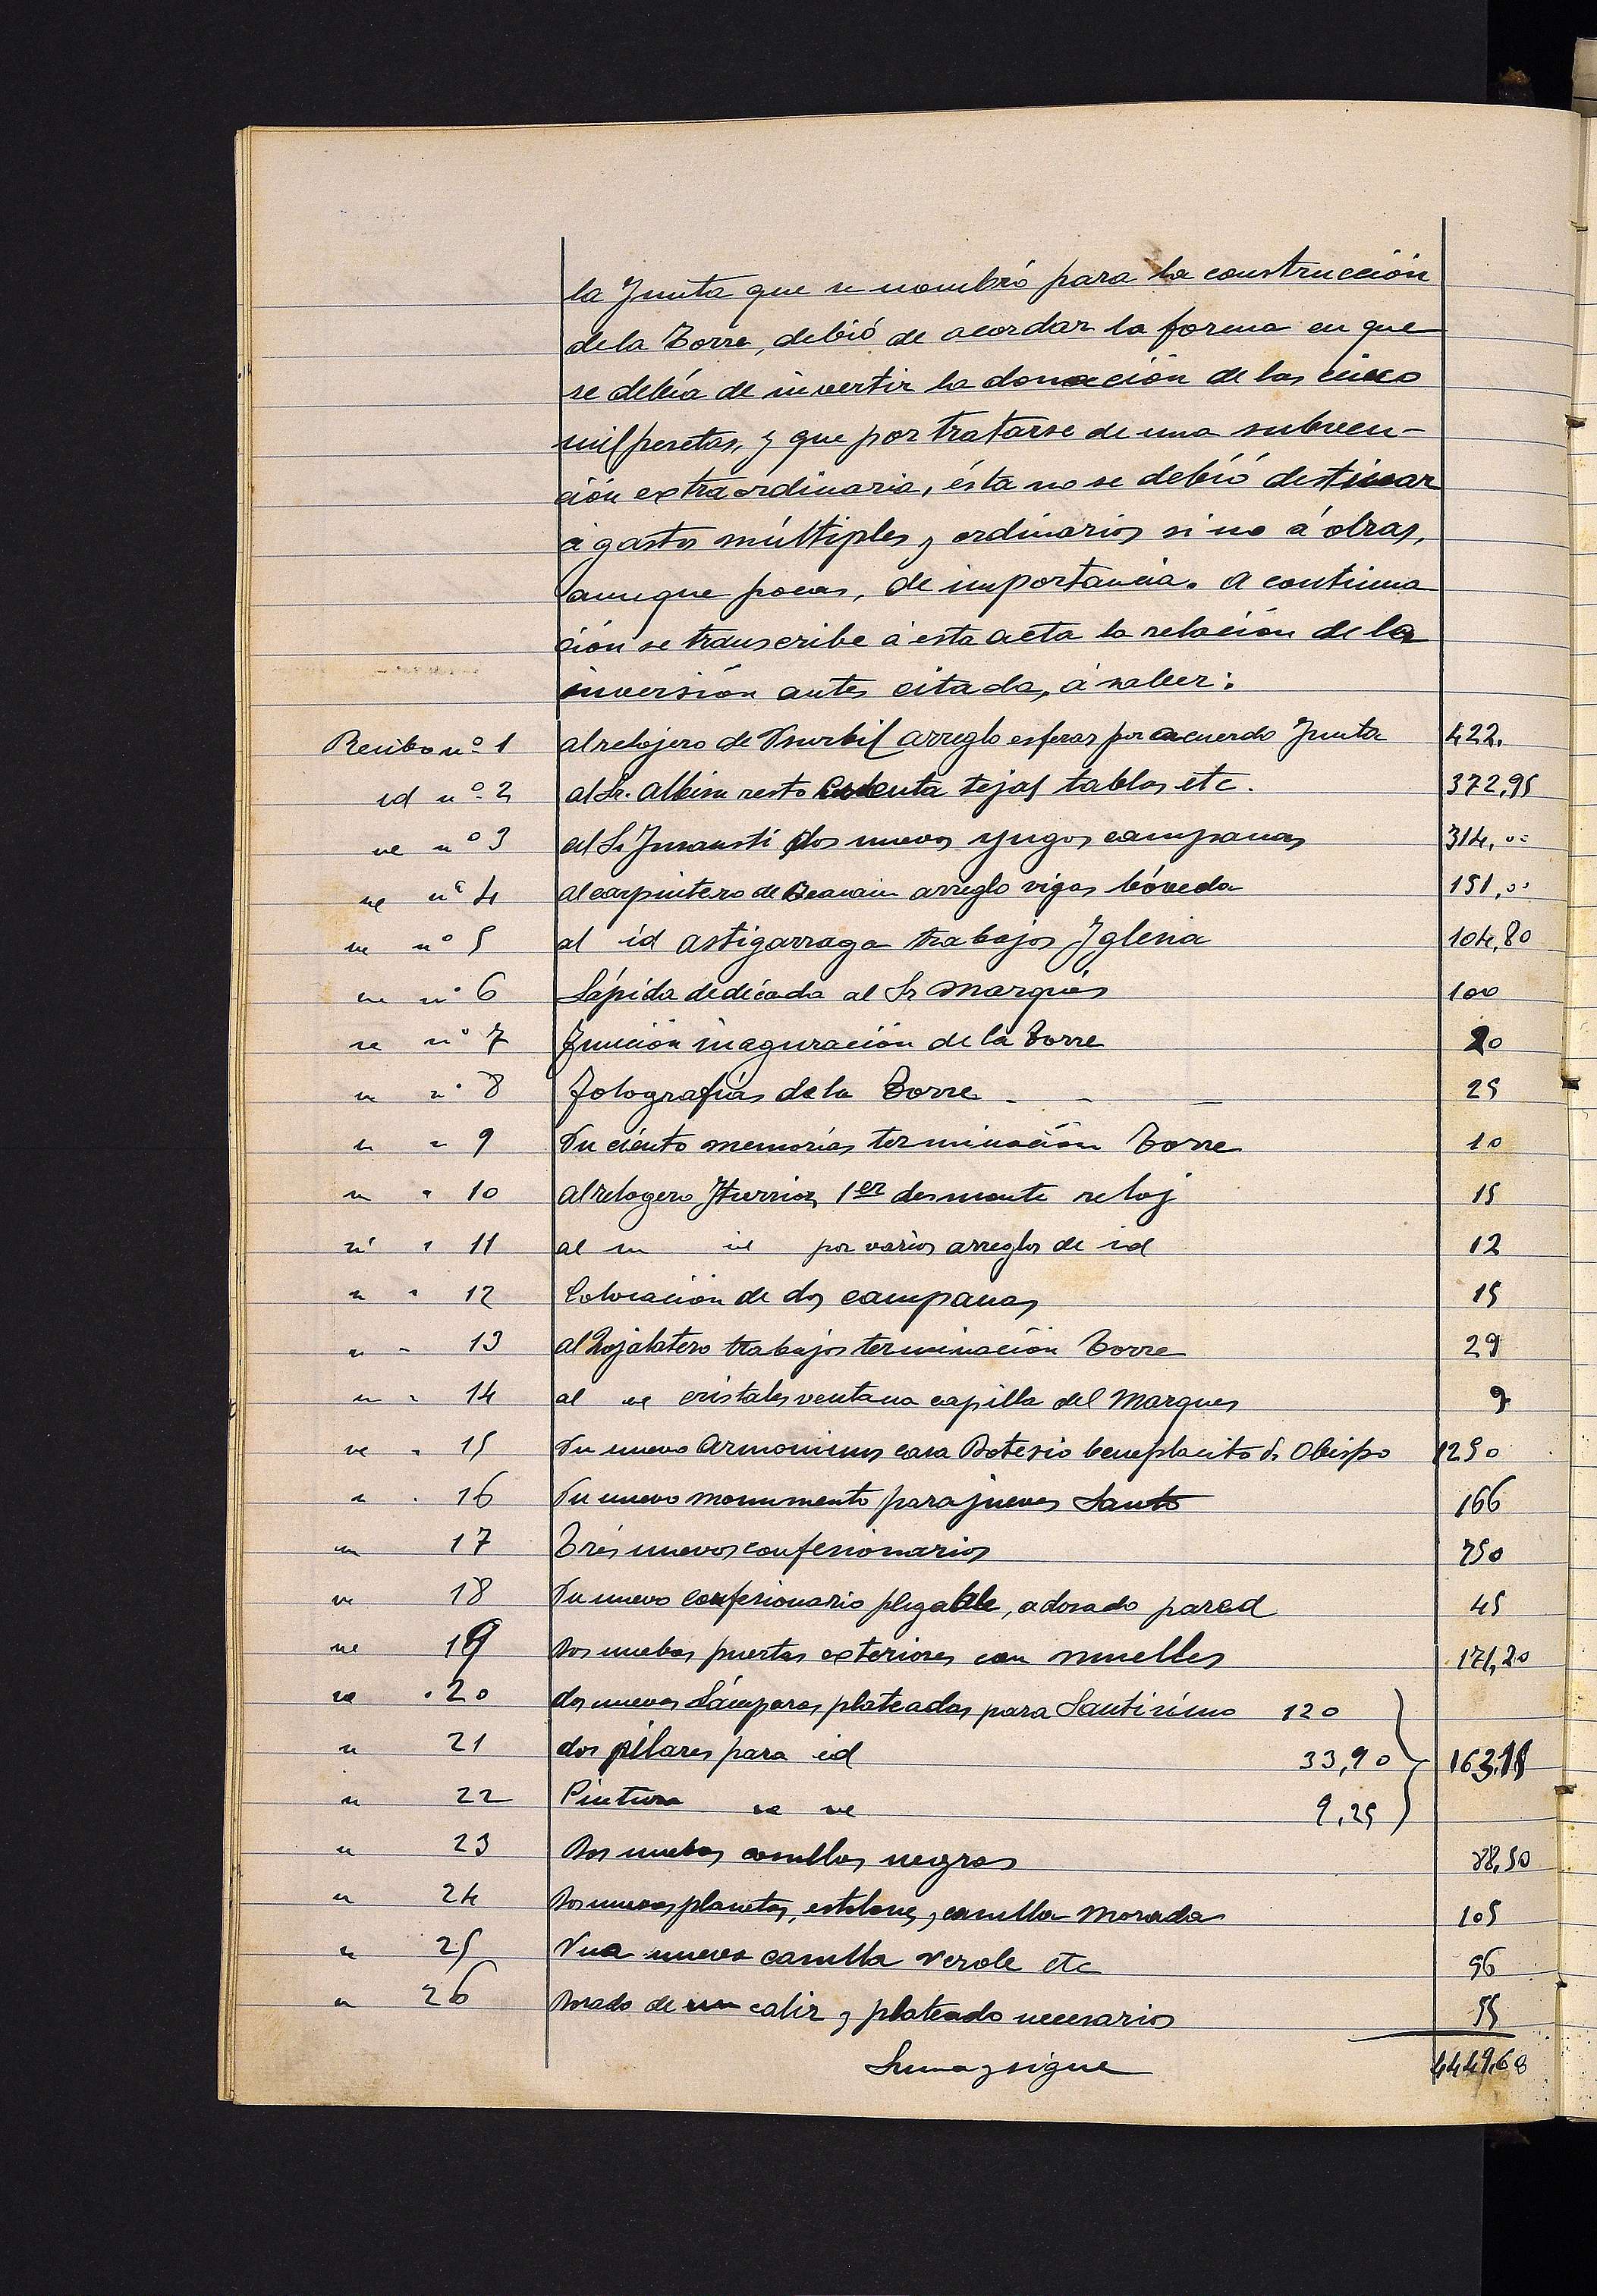 la Junta que se nombró para la construcción
de la Torre, debió de acordar la forma en que
se debía de invertir la donación de las cinco
mil pesetas, y que por tratarse de una subven-
ción extraordinaria, ésta no se debió destinar
á gastos múltiples y ordinarios si no á otras,
aunque pocas, de importancia. A continua
ción se transcribe á esta acta la relación de la
inversión antes citada, á saber:
Recibo nº 1 al relojero de Usurbil arreglo esferas por acuerdo Junta 422.
id nº 2 al Sr. Albisu resto cuenta tejas tablas etc. 372,95
id nº 3 al Sr Murausti dos nuevos yugos campanas 314,00
id nº 4 al carpintero de Beasain arreglo vigas bóveda 151,00
id nº 5 al id Astigarraga trabajos Iglesia 104,80
id nº 6 Lápida dedicada al Sr Marqués 100
id nº 7 Función inaguración de la Torre 20
id nº 8 Fotografías de la Torre 25
" " 9 Un ciento memorias terminación Torre 10
" " 10 al relogero Iturrioz 1er desmonte reloj 15
" " 11 al id id por varios arreglos de id 12
" " 12 Colocación de dos campanas 15
" " 13 al hojalatero trabajos terminación Torre 29
" " 14 al id cristales ventana capilla del Marques 9
id " 15 Un nuevo Armonium casa Dotesio beneplacito Sr Obispo 1250
" " 16 Un nuevo monumento para jueves Santo 166
" 17 Trés nuevos confesionarios 750
id 18 Un nuevo confesionario plegable, adosado pared 45
id 19 Dos nuebas puertas exteriores con muelles 171,20
id " 20 dos nuevas Lámparas plateadas para Santísimo 120
" 21 dos pilares para id 33,90 163,15
" 22 Pintura id id 9,25
" 23 Dos nuebas casullas negras 88,50
" 24 Dos nuevas planetas, estolones, y casulla Morada 105
" 25 Una nueva casulla Verde etc 56
" 26 Dorado de un caliz y plateado necesarios 55
Suma y sigue 4449,60